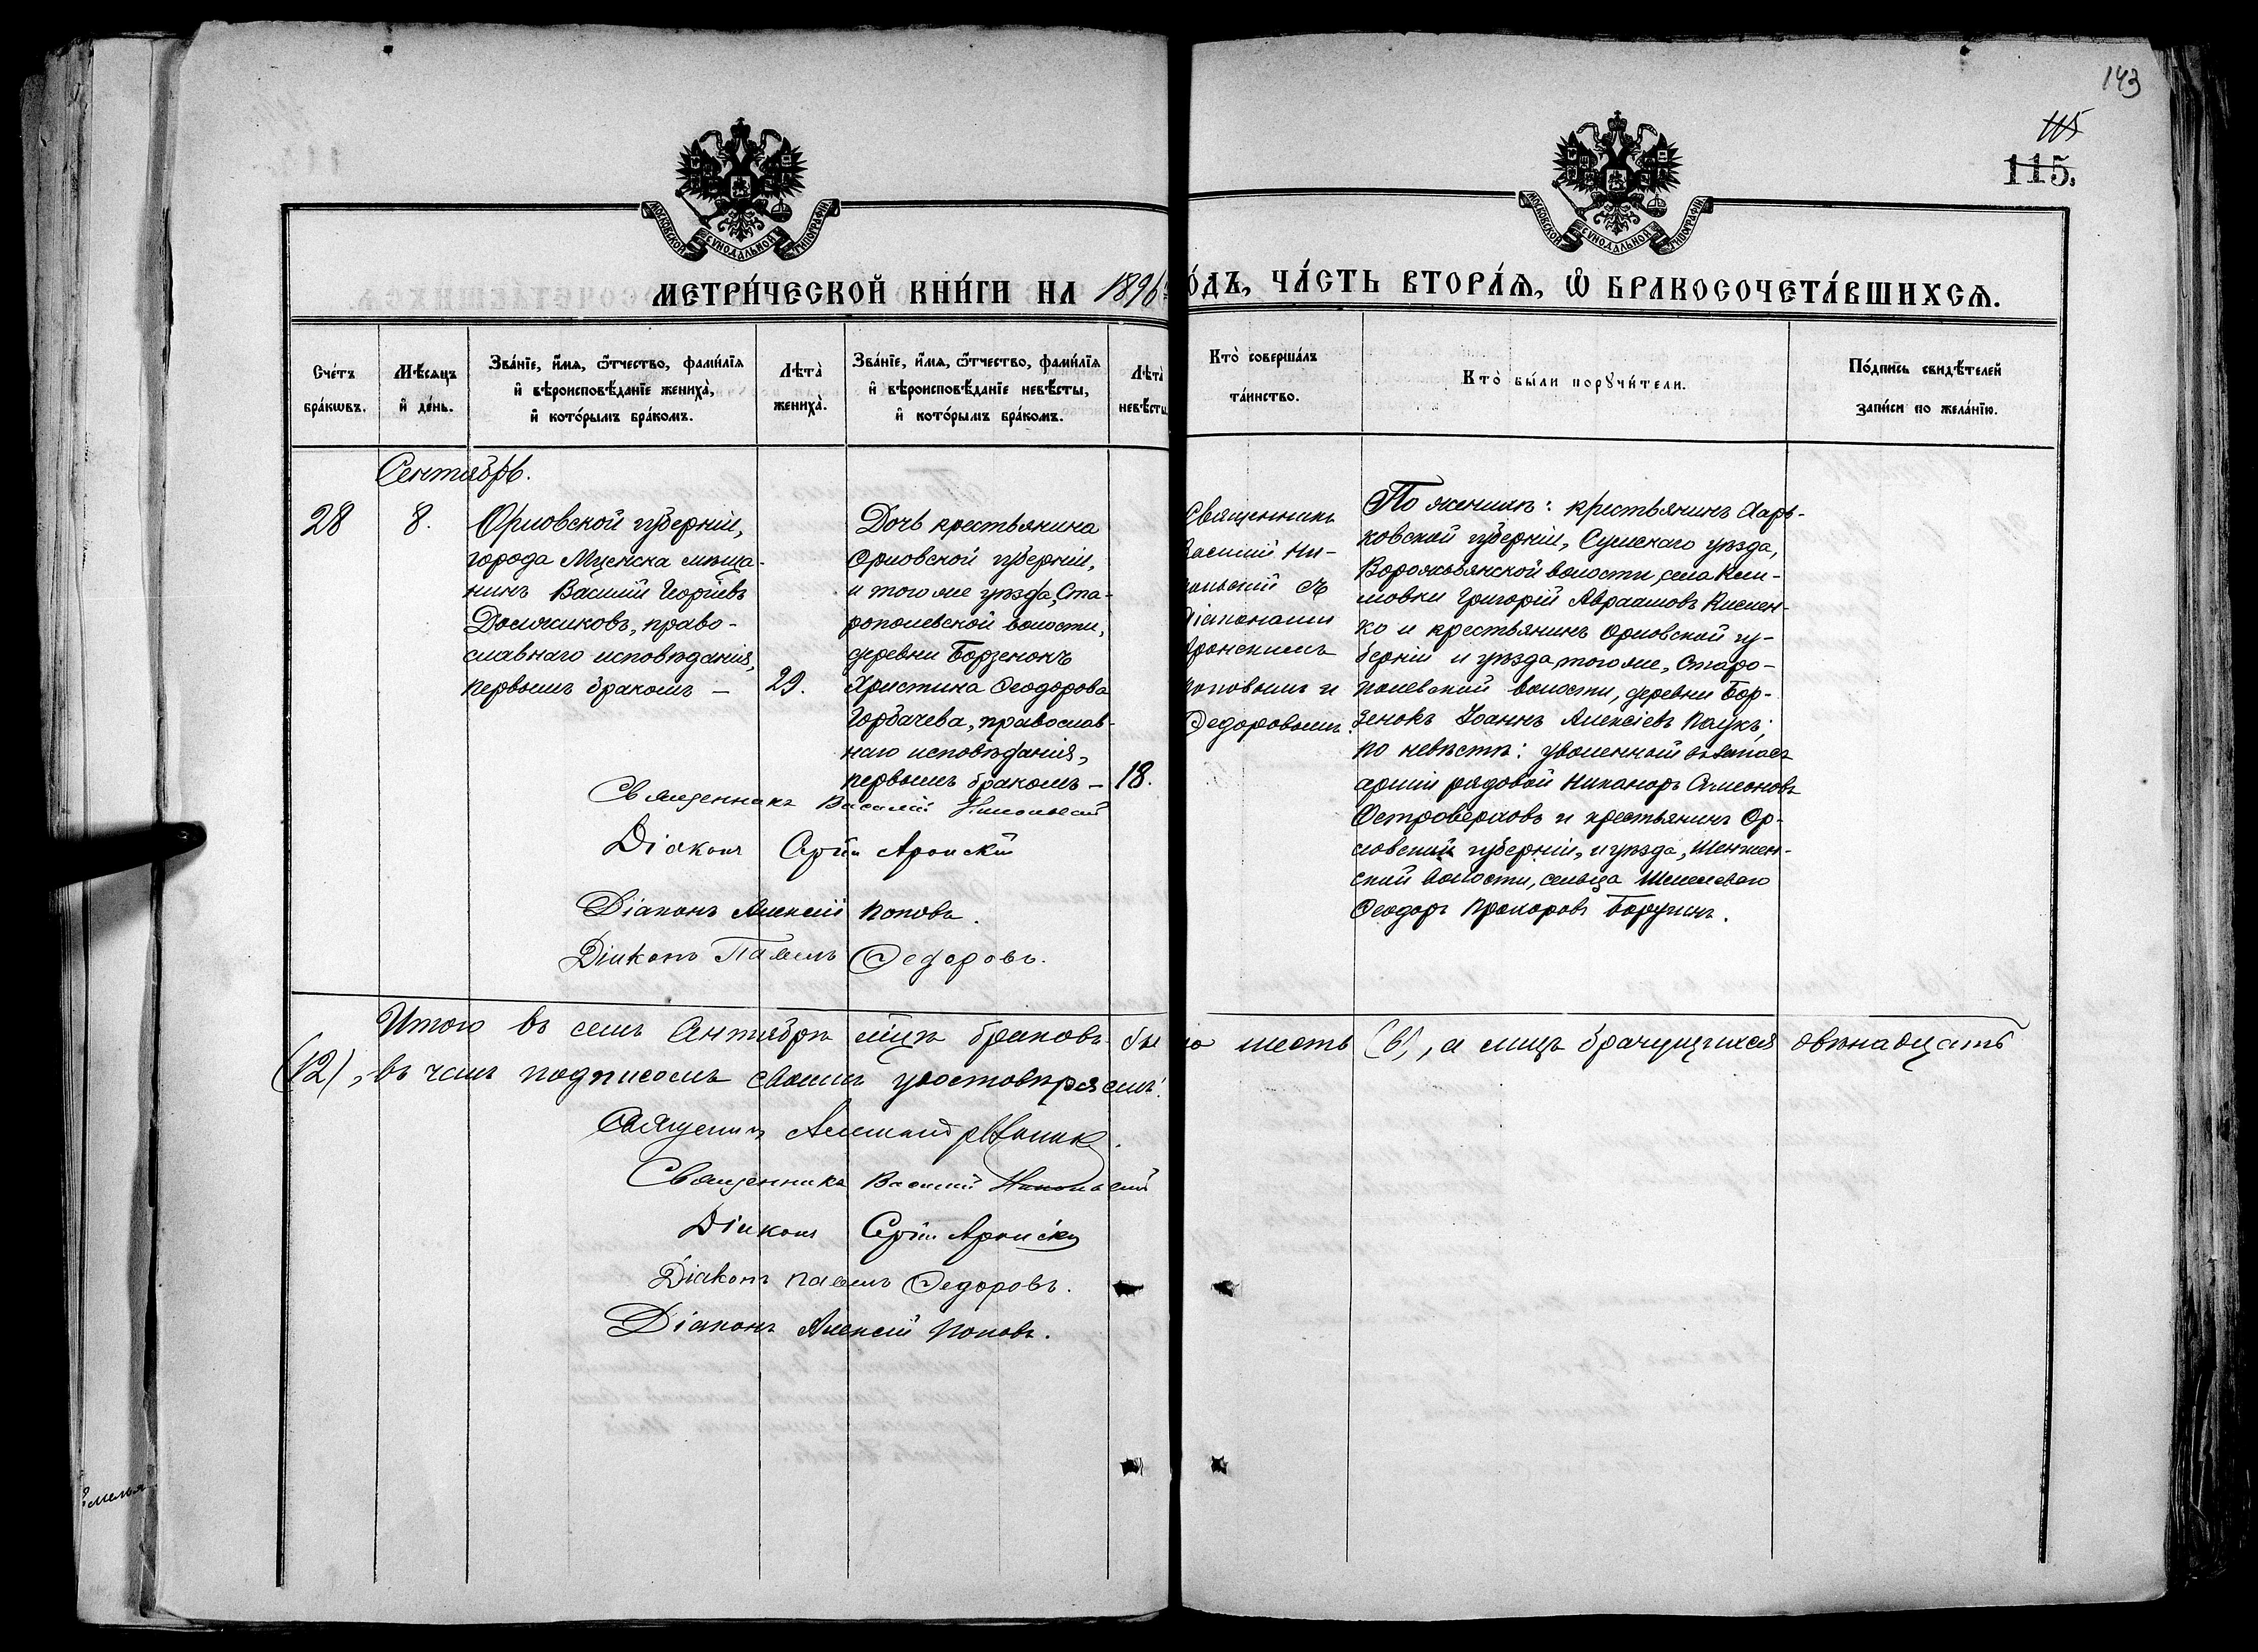 143
115
115.
МОСКОВСКОЙ СѴНОДАЛЬНОЙ ТИПОГРАФІИ
МОСКОВСКОЙ СѴНОДАЛЬНОЙ ТИПОГРАФІИ
МЕТРИ́ЧЕСКОЙ КНИ́ГИ НА 1896
О́ДЪ, ЧА́СТЬ ВТОРА́Ѧ, Ѽ БРАКОСОЧЕТА́ВШИХСѦ.
Сче́тъ бра́кѡвъ.
Мѣ́сяцъ и҆ де́нь.
Зва́нїе, и҆́мѧ, ѻ҆́тчество, фами́лїѧ
и҆ вѣроисповѣ́данїе жениха̀,
и҆ кото́рымъ бра́комъ.
Лѣта̀ жениха̀.
Зва́нїе, и҆́мѧ, ѻ҆́тчество, фами́лїѧ
и҆ вѣроисповѣ́данїе невѣ́сты,
и҆ кото́рымъ бра́комъ.
Лѣта̀ невѣ́сты
Кто̀ соверша́лъ
та́инство.
Кто̀ бы́ли порꙋчи́тели.
По́дпись свидѣ́телей
за́писи по жела́нїю.
Сентябрь.
28
8.
Орловской губерніи,
города Мценска мѣща-
нинъ Василій Георгіевъ
Должиковъ, право-
славнаго исповѣданія,
первымъ бракомъ —
29.
Дочь крестьянина
Орловской губерніи,
и того же уѣзда, Ста-
ропольевской волости,
деревни Борзенокъ
Христина Ѳеодорова
Горбачева, православ-
наго исповѣданія,
первымъ бракомъ —
18.
Священникъ
Василій Ни-
кольскій съ
Діаконами
Аронскимъ
Поповымъ и
Ѳедоровымъ.
По женихѣ: крестьянинъ Харь-
ковской губерніи, Сумскаго уѣзда,
Ворожбянской волости, села Ком-
ловки Григорій Авраамовъ
и крестьянинъ Орловской гу-
берніи и уѣзда того же, Старо-
польевской волости, деревни Бор-
зенокъ Іоаннъ Алексіевъ Паукъ;
по невѣстѣ: уволенный въ запасъ
арміи рядовой Никаноръ Симеоновъ
Островерховъ и крестьянинъ Ор-
ловской губерніи, и уѣзда,
волости, сельца
Ѳеодоръ Прохоровъ
Священникъ Василій Никольскій
Діаконъ Сергій Аронскій
Діаконъ Алексій Поповъ.
Діаконъ Павелъ Ѳедоровъ.
Итого въ семъ Сентябрѣ мѣсяцѣ браковъ бы ло шесть (6), а лицъ брачущихся двѣнадцать
(12), въ чемъ подписомъ своимъ удостовѣряемъ:
Священникъ
Священникъ Василій Никольскій
Діаконъ Сергій Аронскій
Діаконъ Павелъ Ѳедоровъ.
Діаконъ Алексій Поповъ.